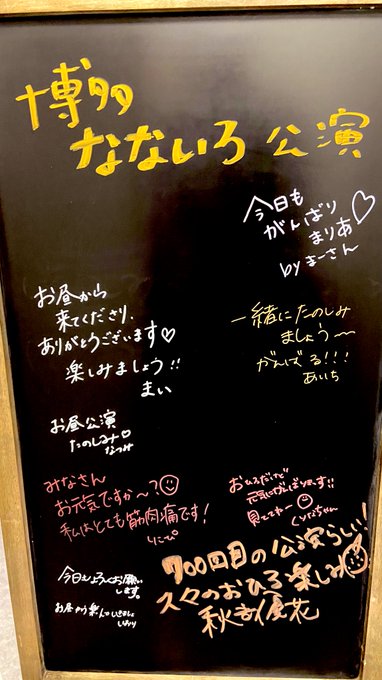 博多
なないろ 公演
今日も
がんばり
まりあ♡
by まーさん
お昼から
来てくださり、
ありがとうございます♡
楽しみましょう!!
まい
一緒にたのしみ
ましょう〜
がんばる!!!
あいち
お昼公演
たのしみ♡
なつみ
みなさん
お元気ですか〜?
私はとても筋肉痛です!
りこぴ
おひるだけど
元気にがんばります!!
見ててネー
今日もよろしくお願い
します。
お昼から楽しんで
700回目の公演らしい!
久々のおひる楽しみ
秋吉優花